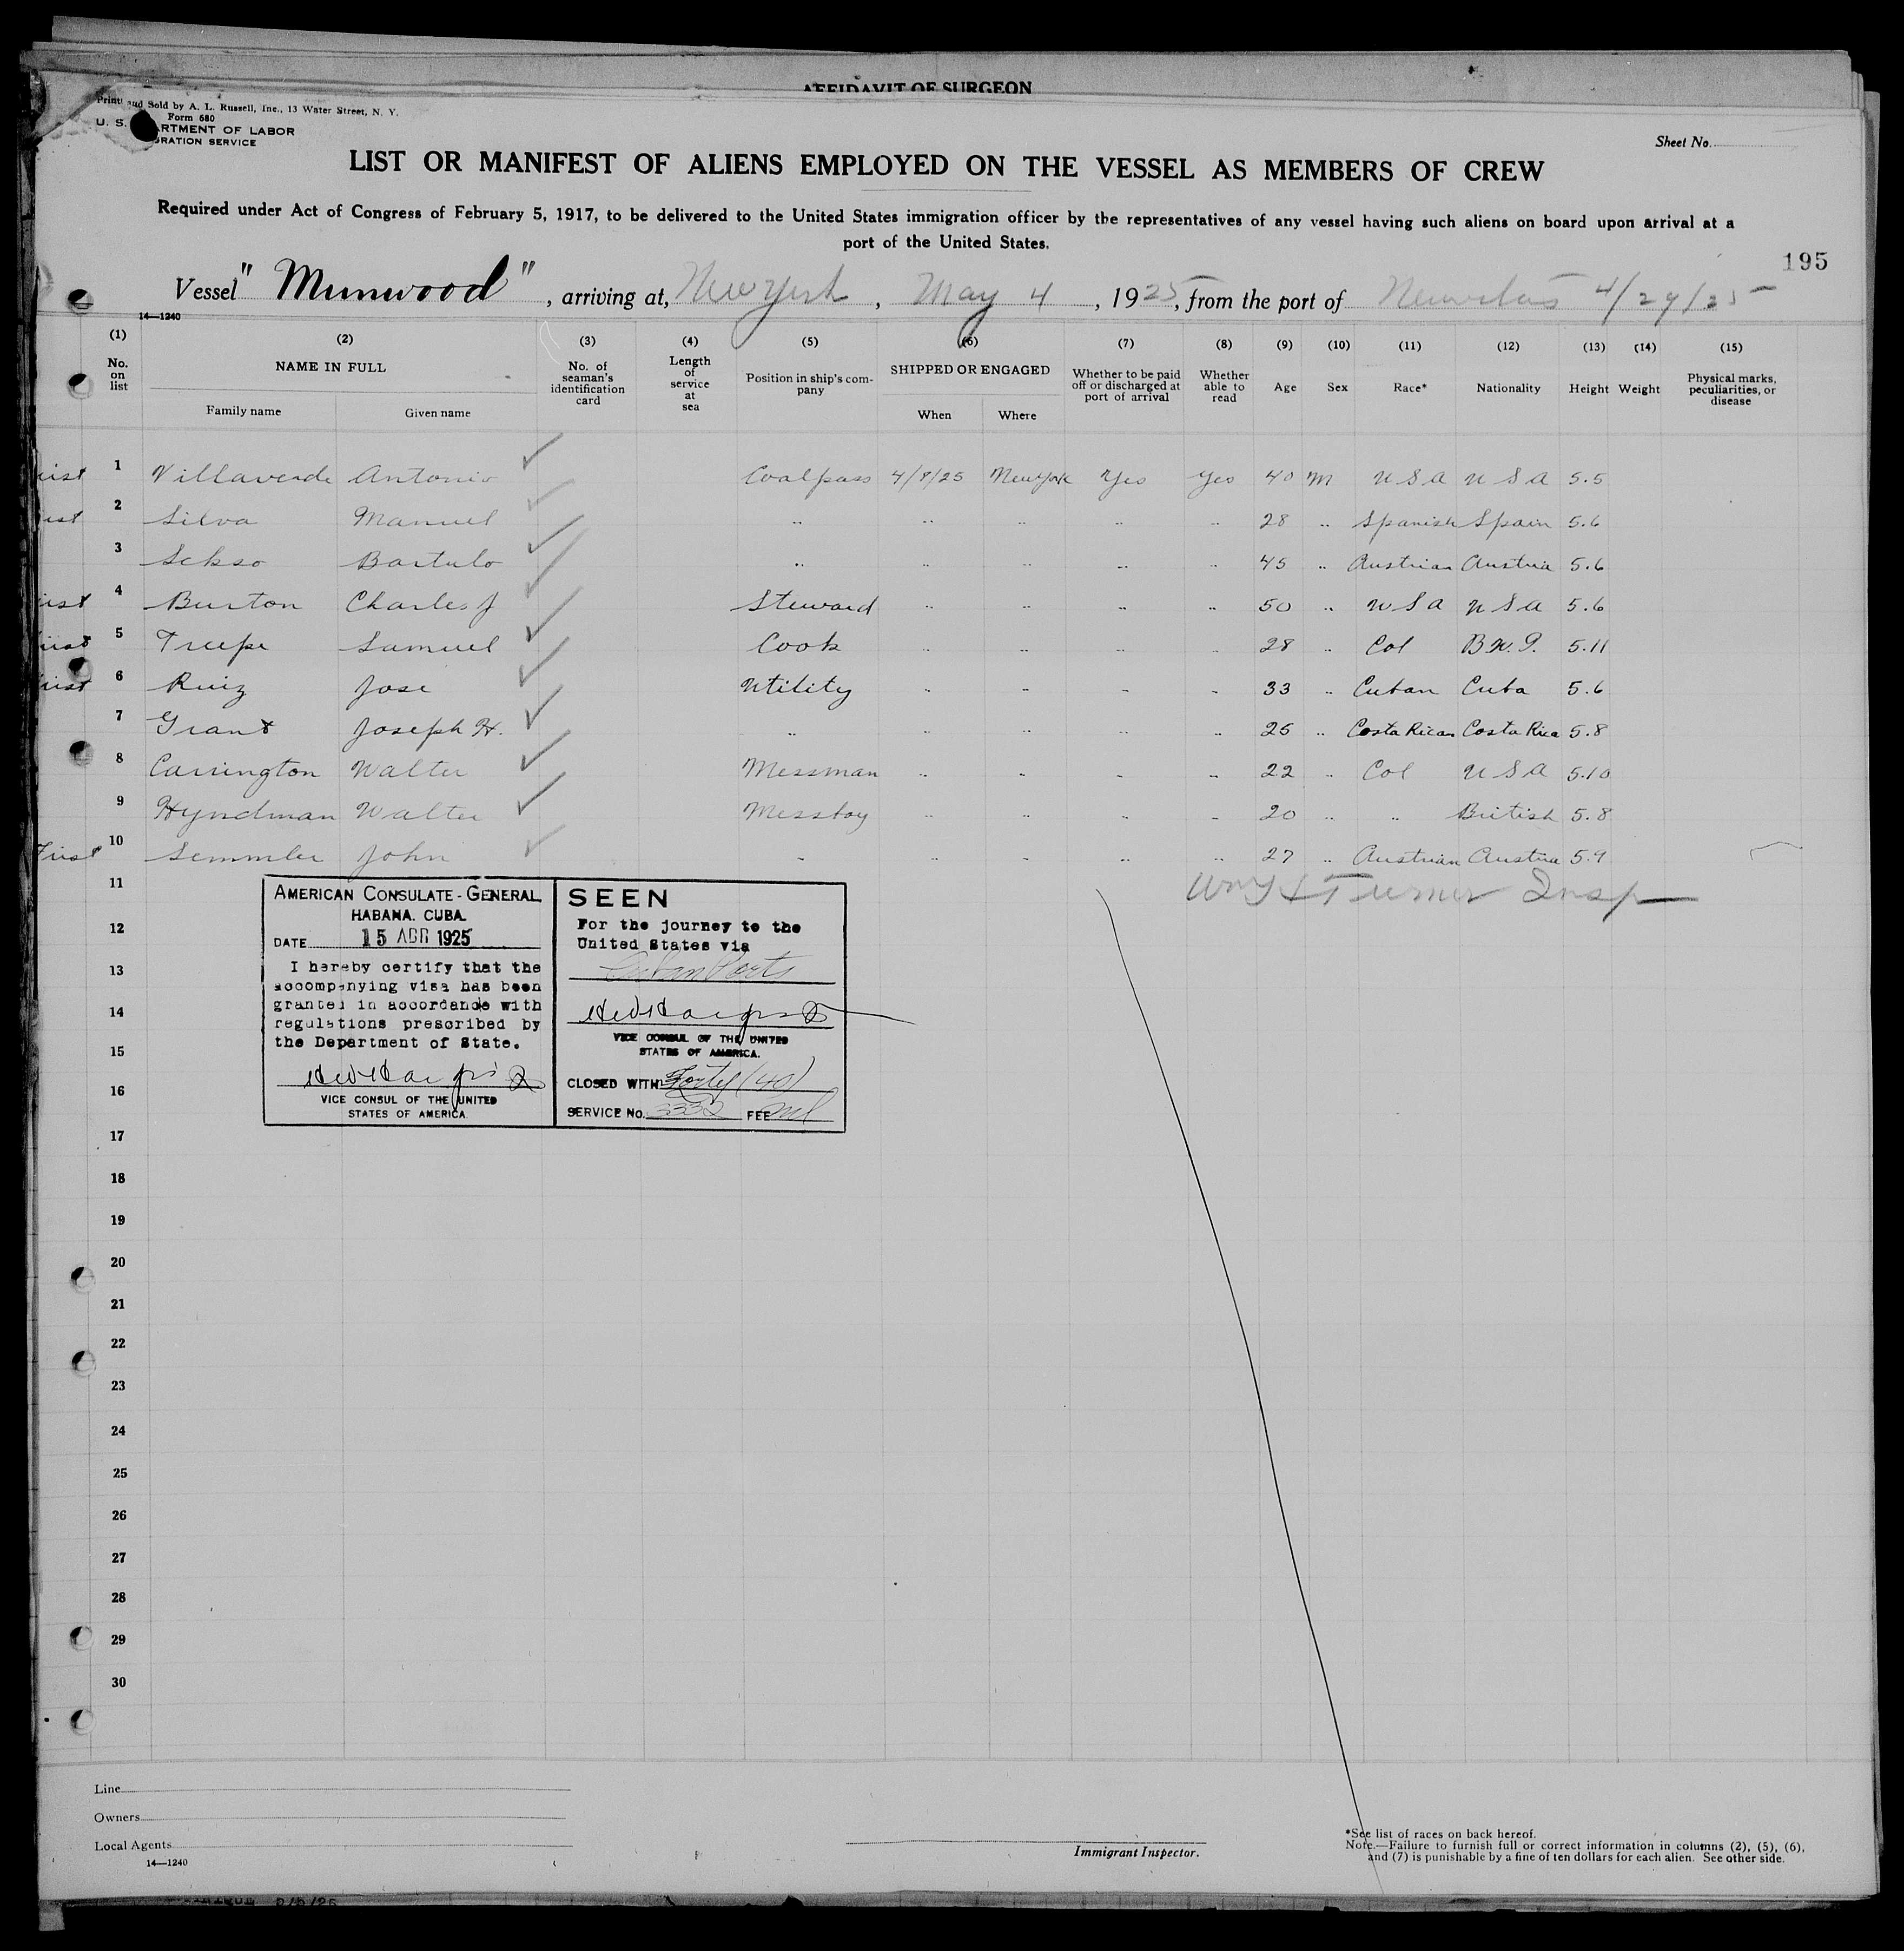 AFFIDAVIT OF SURGEON
Sold by A. L. Russell, Inc., 13 Water Street, N. Y.
Form 680
U. S. ARTMENT OF LABOR
GRATION SERVICE
Sheet No.
LIST OR MANIFEST OF ALIENS EMPLOYED ON THE VESSEL AS MEMBERS OF CREW
Required under Act of Congress of February 5, 1917, to be delivered to the United States immigration officer by the representatives of any vessel having such aliens on board upon arrival at a
port of the United States.
195
Vessel " Munwood ", arriving at, New York, May 4, 1925, from the port of 4/29/25
14—1240
(1) (2) (3) (4) (5) (6) (7) (8) (9) (10) (11) (12) (13) (14) (15)
No. on list NAME IN FULL Family name Given name No. of seaman's identification card Length of service at sea Position in ship's company SHIPPED OR ENGAGED When Where Whether to be paid off or discharged at port of arrival Whether able to read Age Sex Race* Nationality Height Weight Physical marks, peculiarities, or disease
1 Villaverde Antonio Coalpass 4/8/25 New York Yes Yes 40 M U S A U S A 5.5
2 Silva Manuel " " " " " 28 " Spanish Spain 5.6
3 Sckso Bartulo " " " " " 45 " Austrian Austria 5.6
4 Burton Charles J Steward " " " " 50 " U S A U S A 5.6
5 Samuel Cook " " " " 28 " Col B.W.I. 5.11
6 Ruiz Jose Utility " " " " 33 " Cuban Cuba 5.6
7 Grant Joseph H. " " " " " 25 " Costa Rican Costa Rica 5.8
8 Carrington Walter Messman " " " " 22 " Col U S A 5.10
9 Hyndman Walter Messboy " " " " 20 " " British 5.8
First 10 Semmler John " " " " " 27 " Austrian Austria 5.9
Turner Insp
11
12
13
14
15
16
17
18
19
20
21
22
23
24
25
26
27
28
29
30
AMERICAN CONSULATE-GENERAL
HABANA. CUBA.
DATE 15 ABR 1925
I hereby certify that the
accompanying visa has been
granted in accordance with
regulations prescribed by
the Department of State.
VICE CONSUL OF THE UNITED
STATES OF AMERICA.
SEEN
For the journey to the
United States via
Cuban Ports
VICE CONSUL OF THE UNITED
STATES OF AMERICA.
CLOSED WITH Forty (40)
SERVICE NO. 3332 FEE Nil
Line
Owners
Local Agents
14—1240
Immigrant Inspector.
*See list of races on back hereof.
Note.—Failure to furnish full or correct information in columns (2), (5), (6),
and (7) is punishable by a fine of ten dollars for each alien. See other side.